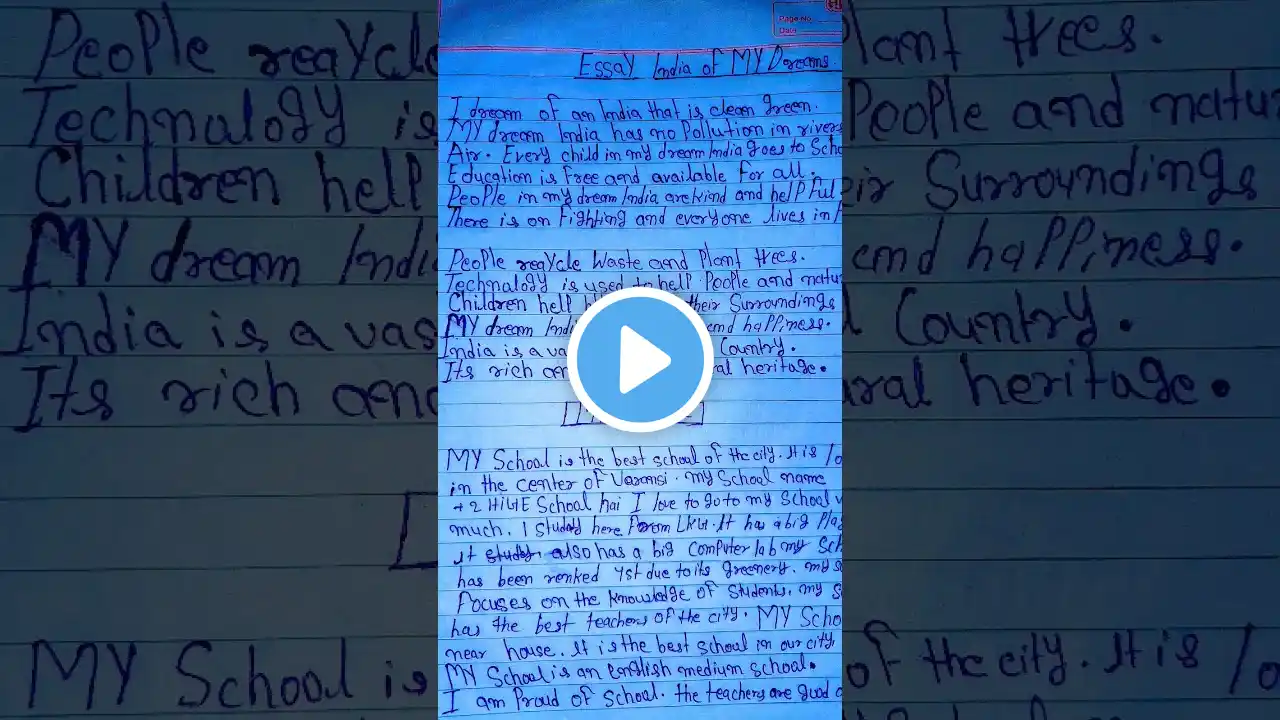 Page No.
Date
Essay India of MY Dreams.
I dream of an India that is clean green.
MY dream India has no Pollution in rivers
Air. Every child in my dream India goes to Scho
Education is Free and available For all.
People in my dream India are kind and help Ful
There is on Fighting and everyone lives in
People reaycle Waste and Plant trees.
Technalogy is used to help People and natu
Children help their Surroundings
MY dream Indi and happiness.
India is a va Country.
Its rich an al heritage.
MY School is the best school of the city. It is lo
in the center of Varansi. my School name
+2 HiGE School hai I love to go to my School v
much. I studay here From LKG. It has a big Pla
It study also has a big computer lab my Sch
has been renked 1st due to its greenery. my s
Focuses on the knowledge of students. my s
has the best teachers of the city. MY Scho
near house. It is the best school in our city
MY School is an english medium school.
I am Proud of School. the teachers are good
People reaycle
Technalogy is
Children help
MY dream Indi
India is a vas
Its rich and
MY School is
Plant trees.
People and natu
eir Surroundings
and happiness.
Country.
ural heritage.
of the city. It is lo